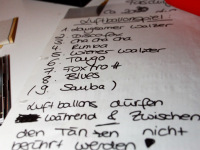 Luftballonspiel:
1. Langsamer Walzer
2. Discofox
3. Cha Cha Cha
4. Rumba
5. Wiener Walzer
6. Tango
7. Foxtrott
8. Blues
(9. Samba)
Luftballons dürfen
während & zwischen
den Tänzen nicht
berührt werden